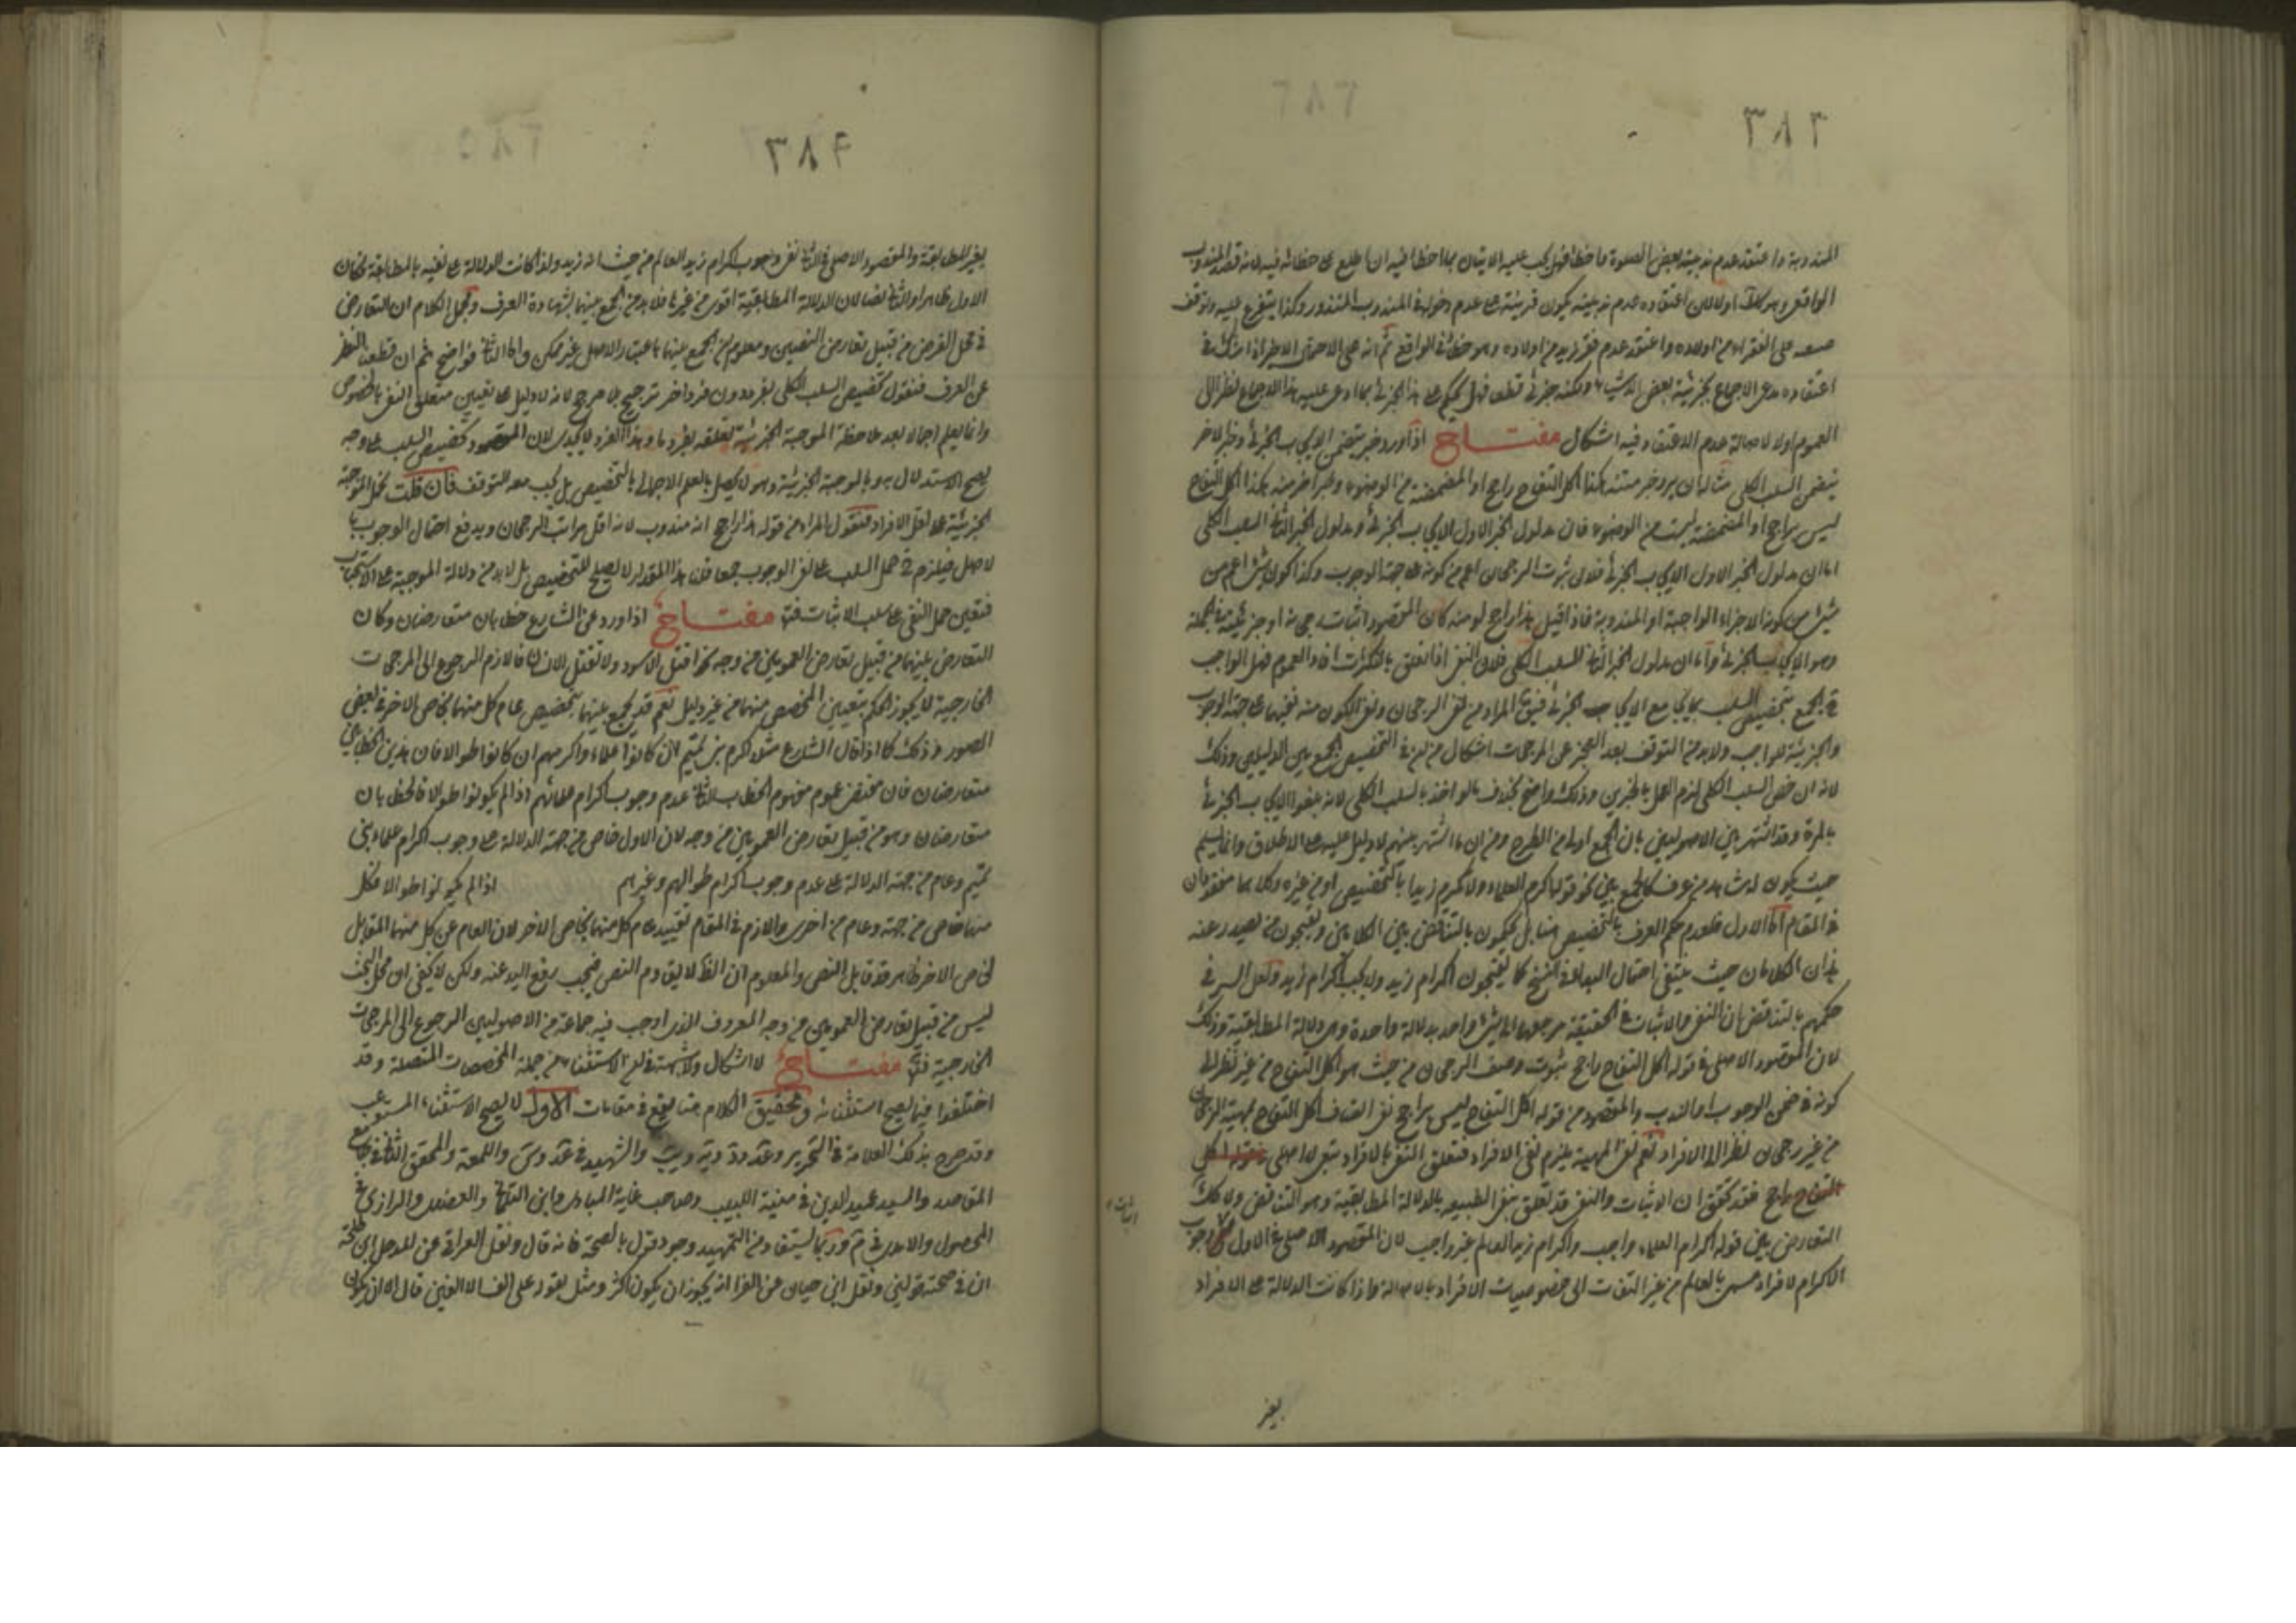 ٣٨٦
المندوبة واعتقد عدم ندبية بعض الصلوة ما خطا فهل يجب عليه الاتيان بما اخطا فيه ان اطلع على خطائه فيه لانه قصد المندوب
الواقعي وهو كك او لا لان اعتقاده عدم ندبيته يكون قرينة على عدم دخوله في المندوب المنذور وكذا يتفرع عليه ما لو وقف
على الفقراء من اولاده واعتقد عدم فقر زيد من اولاده وهو خطاء في الواقع ثم انه على الاحتمال الاخير اذا شك في
اعتقاده مدعى الاجماع بجزئية بعض الاشياء ولكنه جزئي قطعا فهل يحكم على هذا الجزئي بما ادعى عليه هذا الاجماع نظرا الى
العموم او لا لاصالة عدم الاعتقاد فيه اشكال مفتاح اذا ورد خبر يتضمن الايجاب الجزئي وخبر اخر
يتضمن السلب الكلي مثاله ان يرد خبر مسند هكذا اكل التفاح راجح او المضمضة من الوضوء وخبر اخر مسند هكذا اكل التفاح
ليس براجح او المضمضة ليست من الوضوء فان مدلول الخبر الاول الايجاب الجزئي ومدلول الخبر الثاني السلب الكلي
اما ان مدلول الخبر الاول الايجاب الجزئي فلان ثبوت الرجحان اعم من كونه على جهة الوجوب وكذا كون شئ اعم من
شئ من كونه الاجزاء الواجبة او المندوبة فاذا قيل هذا راجح او منه كان المقصود اثبات رجحانه او جزئيته في الجملة
وهو الايجاب الجزئي واما ان مدلول الخبر الثاني السلب الكلي فلان النفي اذا تعلق بالنكرات افاد العموم فهل الواجب
في الجمع تخصيص السلب الكلي مع الايجاب الجزئي فيق المراد من نفي الرجحان ونفي الكون منه نفيهما على جهة الوجوب
والجزئية للواجب ولا بد من التوقف بعد العجز عن المرجحات اشكال من ان في التخصيص الجمع بين الدليلين وذلك
لانه ان خص السلب الكلي لزم العمل بالخبرين وذلك واضح بخلاف ما لو اخذ بالسلب الكلي لانه يلغو الايجاب الجزئي
بالمرة وقد اشتهر بين الاصوليين بان الجمع اولى من الطرح ومن ان ما اشتهر بينهم لا دليل عليه على الاطلاق وانما يسلم
حيث يكون له شاهد من عرف كالجمع بين نحو قوله اكرم العلماء ولا تكرم زيدا بالتخصيص او من غيره وكلاهما مفقودان
في المقام اما الاول فلعدم حكم العرف بالتخصيص هنا بل يحكمون بالتناقض بين الكلامين ويتعجبون من يصدر عنه
هذان الكلامان حيث ينتفي احتمال البداء او النسخ كما يتعجبون اكرام زيد ولا يجب اكرام زيد ولعل السر في
حكمهم بالتناقض ان النفي والاثبات في الحقيقة مرجعهما الى شئ واحد بدلالة واحدة وهي دلالة المطابقية وذلك
لان المقصود الاصلي في قوله اكل التفاح راجح ثبوت وصف الرجحان من حيث هو اكل التفاح من غير نظر الى
كونه في ضمن الوجوب او الندب والمقصود من قوله اكل التفاح ليس براجح نفي اتصاف اكل التفاح بمهية الرجحان
من غير رجحان نظر الى الافراد نعم نفي المهية يلزم نفي الافراد فتعلق النفي بالافراد تبعي لا اصلي
فقد تحقق ان الاثبات والنفي قد تعلق بنفي الطبيعه بالدلالة المطابقية وهو التناقض ولا كك
التعارض بين قوله اكرام العلماء واجب واكرام زيد العالم غير واجب لان المقصود الاصلي في الاول وجوب
الاكرام لافراد مسمى بالعالم من غير التفات الى خصوصيات الافراد بالاصالة واذا كانت الدلالة على الافراد
بغير
٣٨٧
بغير المطابقة والمقصود الاصلي في الثاني نفي وجوب اكرام زيد العالم من حيث انه زيد ولذا كانت الدلالة على نفيه بالمطابقة فكان
الاول ظاهرا والثاني نصا لان الدلالة المطابقية اقوى من غيرها فلا بد من الجمع بينهما بشهادة العرف ومجمل الكلام ان التعارض
في محل الفرض من قبيل تعارض النصين ومعلوم ان الجمع بينهما باعتبار الاصل غير ممكن واما الثاني فواضح ثم ان قطعنا النظر
عن العرف فنقول تخصيص السلب الكلي بفرد دون فرد اخر ترجيح بلا مرجح لانه لا دليل على تعيين متعلق النفي بالخصوص
وانما يعلم اجمالا بعد ملاحظة الموجبة الجزئية تعلقه بفرد ما وهذا الفرد لا يجدي لان المقصود تخصيص السلب على وجه
يصح الاستدلال به وبالموجبة الجزئية وهو لا يحصل بالعلم الاجمالي بالتخصيص بل يجب معه التوقف فان قلت تحمل الموجبة
الجزئية على اقل الافراد فنقول المراد من قوله هذا راجح انه مندوب لانه اقل مراتب الرجحان ويدفع احتمال الوجوب با
لاصل فيلزم ح حمل السلب على نفي الوجوب جمعا قلت هذا المقدار لا يصلح للتخصيص بل لا بد من دلالة الموجبة على الاستحباب
فتعين حمل النفي على سلب الاثبات فتدبر مفتاح اذا ورد عن الشارع خطابان متعارضان وكان
التعارض بينهما من قبيل تعارض العمومين من وجه نحو اقتل الاسود ولا تقتل الانسان فاللازم الرجوع الى المرجحات
الخارجية لا يجوز الحكم بتعيين المخصص منهما من غير دليل نعم قد يجمع بينهما بتخصيص عام كل منهما بخاص الاخر في بعض
الصور وذلك كما اذا قال الشارع مثلا اكرم بني تميم ان كانوا علماء واكرمهم ان كانوا طوالا فان هذين الخطابين
متعارضان فان مقتضى عموم مفهوم الخطاب الثاني عدم وجوب اكرام علمائهم اذا لم يكونوا طوالا فالخطابان
متعارضان وهو من قبيل تعارض العمومين من وجه لان الاول خاص من جهة الدلالة على وجوب اكرام علماء بني
تميم وعام من جهة الدلالة على عدم وجوب اكرام طوالهم وغيرهم اذا لم يكونوا طوالا فكل
منهما خاص من جهة وعام من اخرى واللازم في المقام تقييد عام كل منهما بخاص الاخر لان العام عن كل منهما المقابل
لخاص الاخر ظاهر قد قابل النص والمعلوم ان الظ لا يقاوم النص فيجب رفع اليد عنه ولكن لا يخفى ان محل البحث
ليس من قبيل تعارض العمومين من وجه المعروف الذي اوجب فيه جماعة من الاصوليين الرجوع الى المرجحات
الخارجية فتدبر مفتاح لا اشكال ولا شبهة في ان الاستثناء من جملة المخصصات المتصلة وقد
اختلفوا فيما يصح استثنائه وتحقيق الكلام هنا يقع في مقامات الاول لا يصح الاستثناء المستوعب
وقد صرح بذلك العلامة في التحرير وعد ود ويه ويب والشهيد في عد وس واللمعة والمحقق الثاني في جامع
المقاصد والسيد عميد الدين في منية اللبيب وصاحب غاية المبادى وابن التلمساني والعضدي والرازي في
المحصول والامدي في م وربما يستفاد من التمهيد وجود قول بالصحة فانه قال ونقل القرافي عن المدخل لابن طلحة
ان في صحته قولين ونقل ابن حيان عن الفراء انه يجوز ان يكون اكثر ومثل بقوله علي الف الا الفين قال الا ان يكون